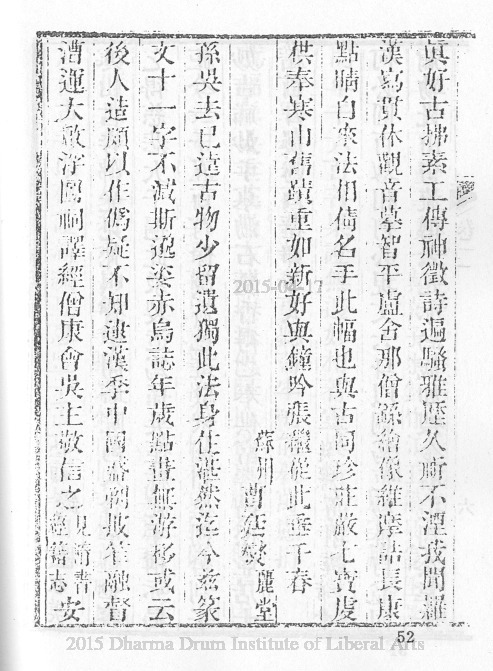 真好古拂素工傳神徵詩遍騷雅歷久所不湮我聞羅
漢寫貫休觀音摹智平盧舍那僧繇繪像維摩詰長康
點睛白家法相倚名手此幅也與古同珍莊嚴七寶虔
供奉寒山舊蹟重如新好與鐘吟張繼從此垂千春
蘇州 曹 麗堂
孫吳去已遠古物少留遺獨此法身住湛然迄今茲篆
文十一字不滅斯邈姿赤烏誌年歲點畫無游移或云
後人造頗以作偽疑不知逮漢季中國
漕運大啟浮圖祠譯經僧康會吳主敬信之見隋書經籍志安
2015-04-17
52
2015 Dharma Drum Institute of Liberal Arts